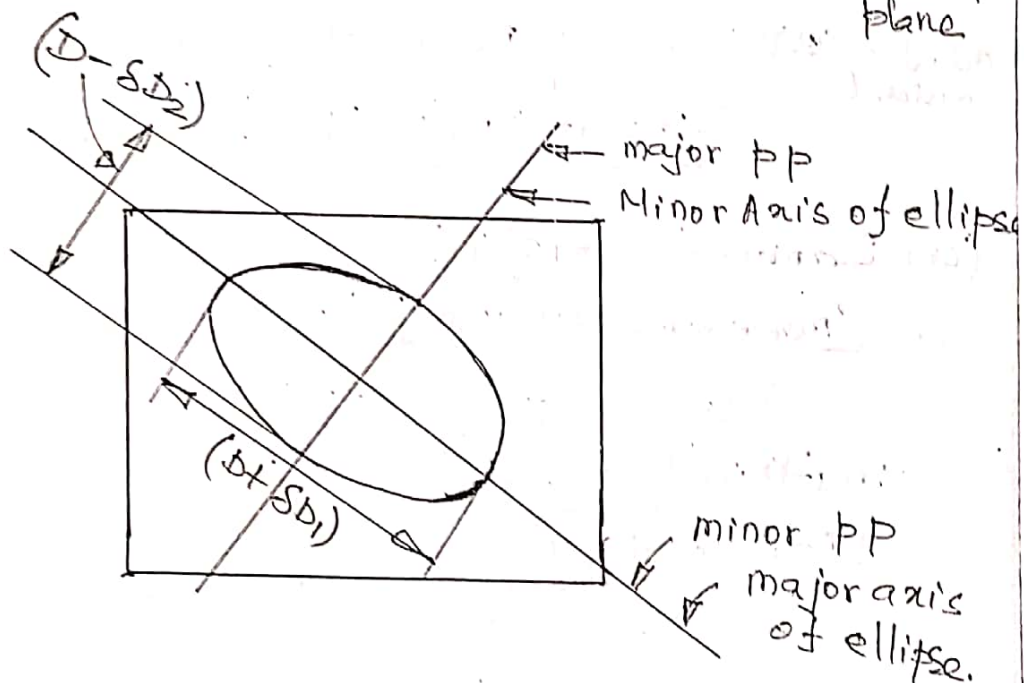 plane
(D-δD₂)
major pp
Minor Axis of ellipse
(D+δD₁)
minor pp
major axis
of ellipse.